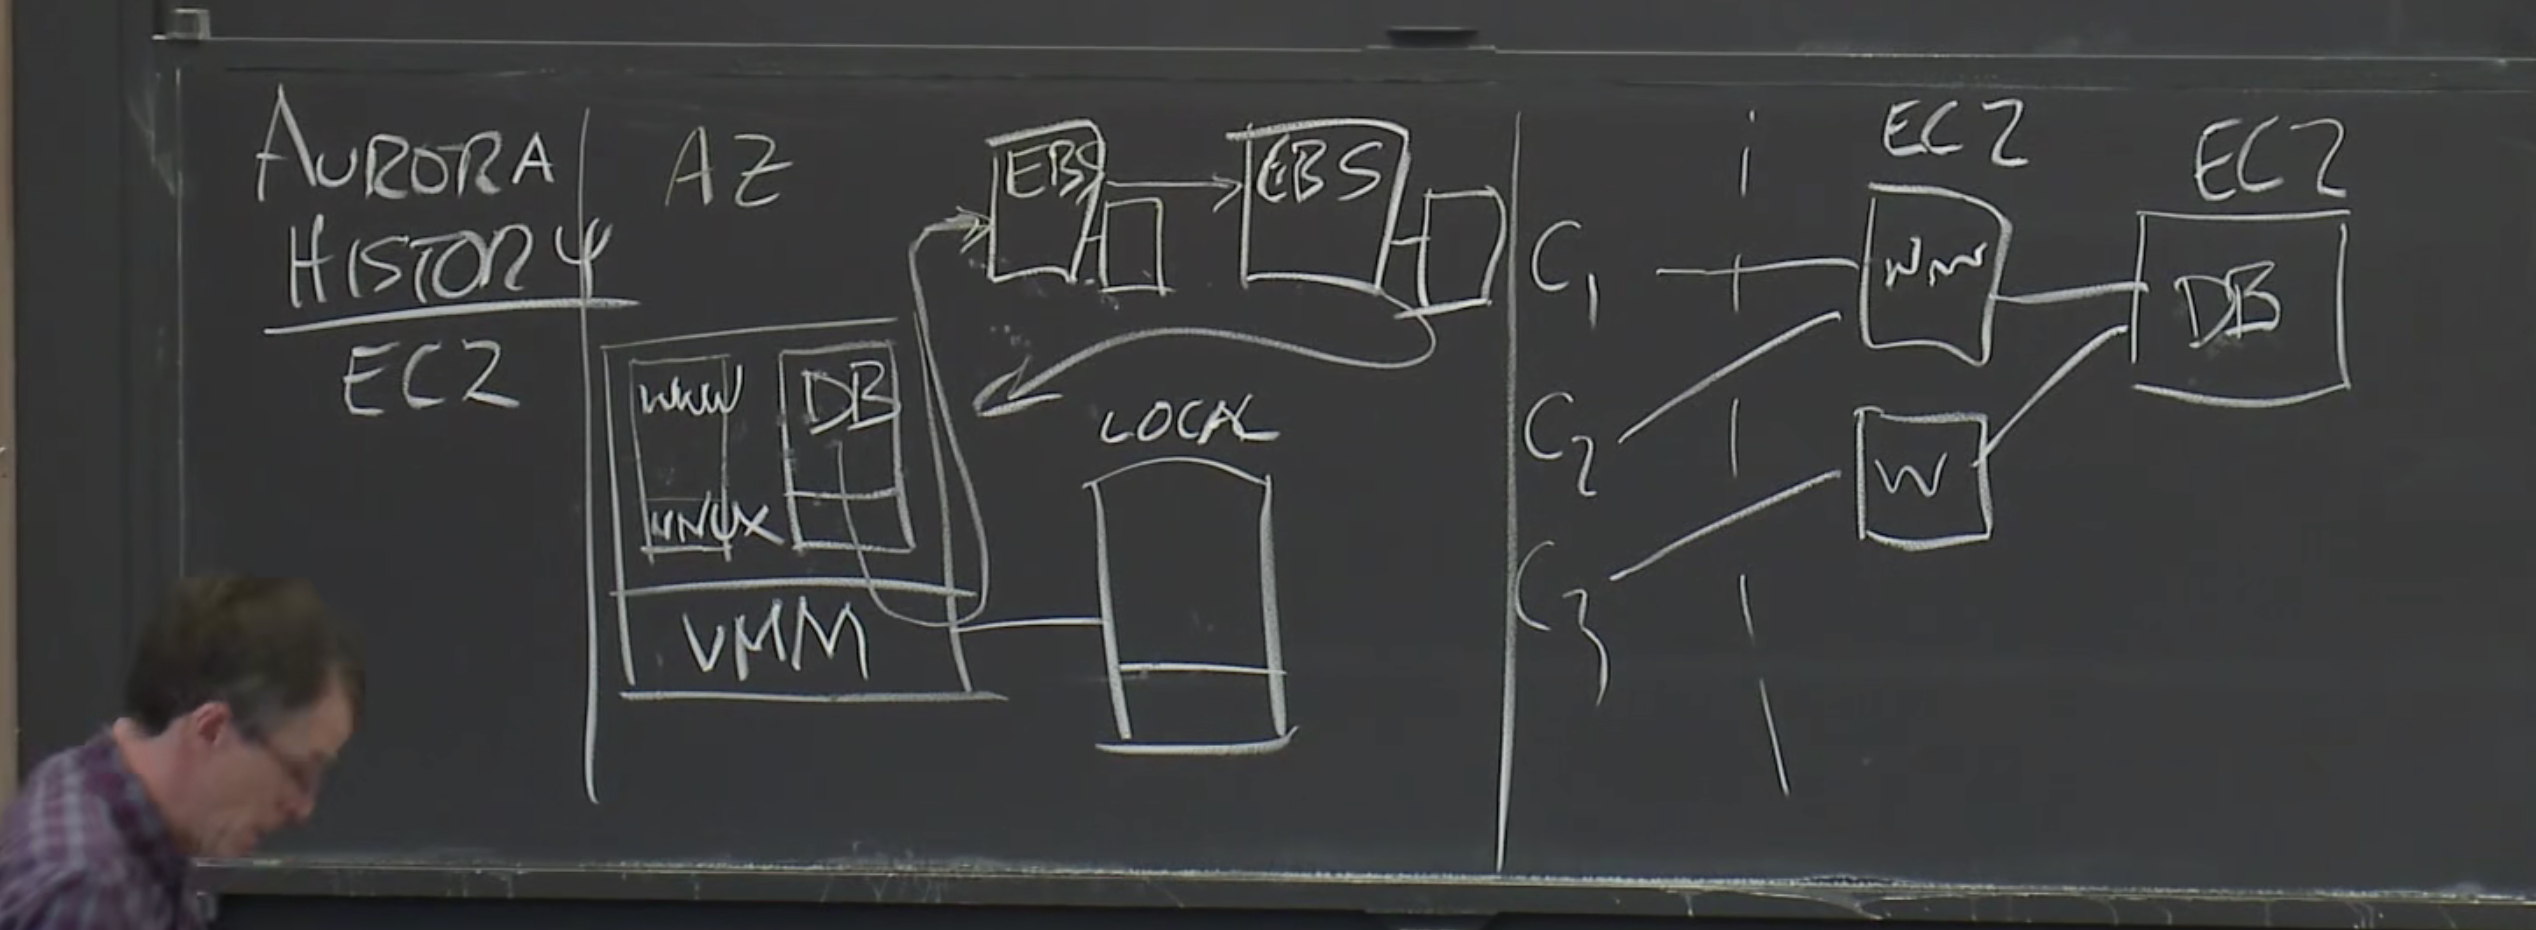 AURORA
HISTORY
EC2
AZ
EBS
EBS
WWW
DB
LINUX
VMM
LOCAL
EC2
EC2
C1
C2
C3
WWW
W
DB